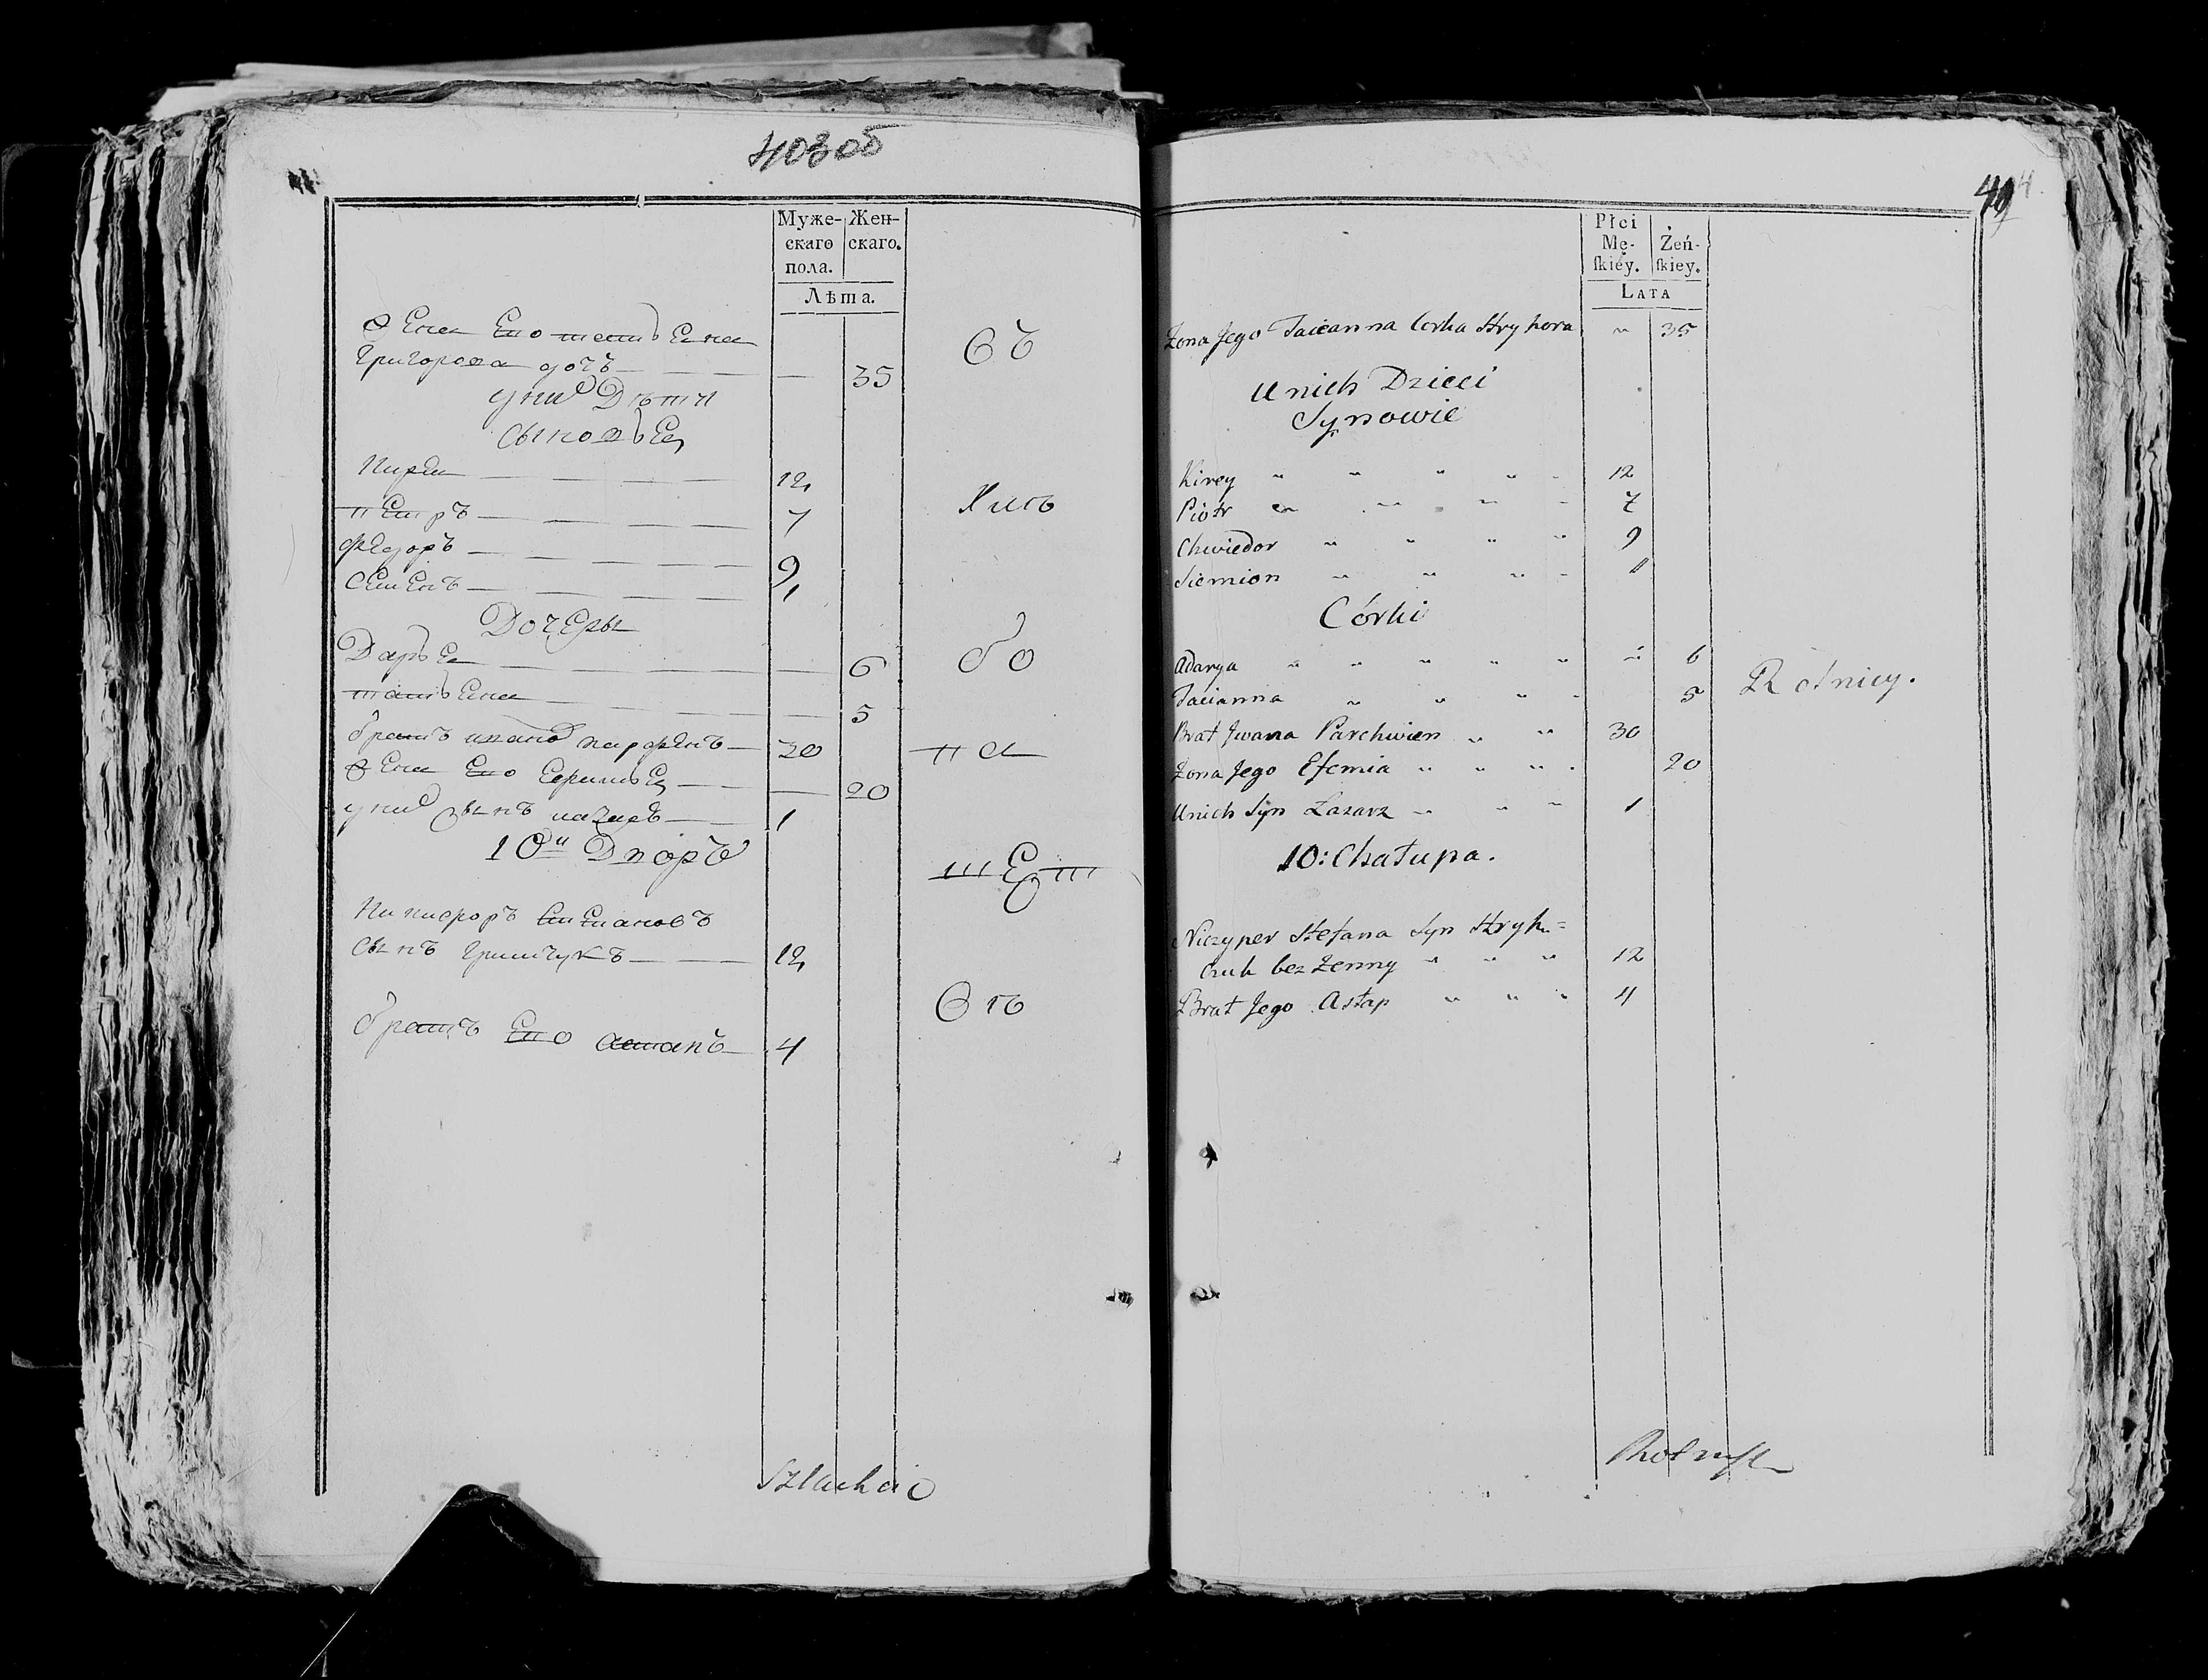 403об
Муже- Жен-
скаго скаго.
пола.
Лѣта.
Жена Его татьЕна
Григорова дочъ — — — — 35
у них Дѣти
сыновьЕ
Кирей — — — — 12
пЕтръ — — — — 7
фЕдоръ — — — — 9
сЕмЕнъ — — — — 1
ДочЕры
ДарьЕ — — — — 6
татьЕна — — — — 5
братъ ивана парфЕнъ — 30
Жена Его ЕфимьЕ — — 20
у них сынъ лазаръ — — 1
10й Дворъ
Никифоръ стЕпановъ
сынъ Гришчукъ — — — 12
братъ Его астапъ — 4
Съ
бо
па
Szlachcic
404
Płci
Mę- Żeń-
ſkiéy. ſkiey.
LATA
Żona Jego Tacianna Corka Hryhora " 35
U nich Dzieci
Synowie
Kirey " " " " 12
Piotr " " " " 7
Chwiedor " " " " 9
Siemion " " " " 1
Córki
Adarya " " " " " " 6
Tacianna " " " " 5
Brat Jwana Parchwien " " 30
Żona Jego Efemia " " " " 20
U nich Syn Łazarz " " " 1
10: Chałupa.
Niczyper Stefana Syn Hryh=
czuk bez Żenny " " " 12
Brat Jego Astap " " " 4
Rotnicy.